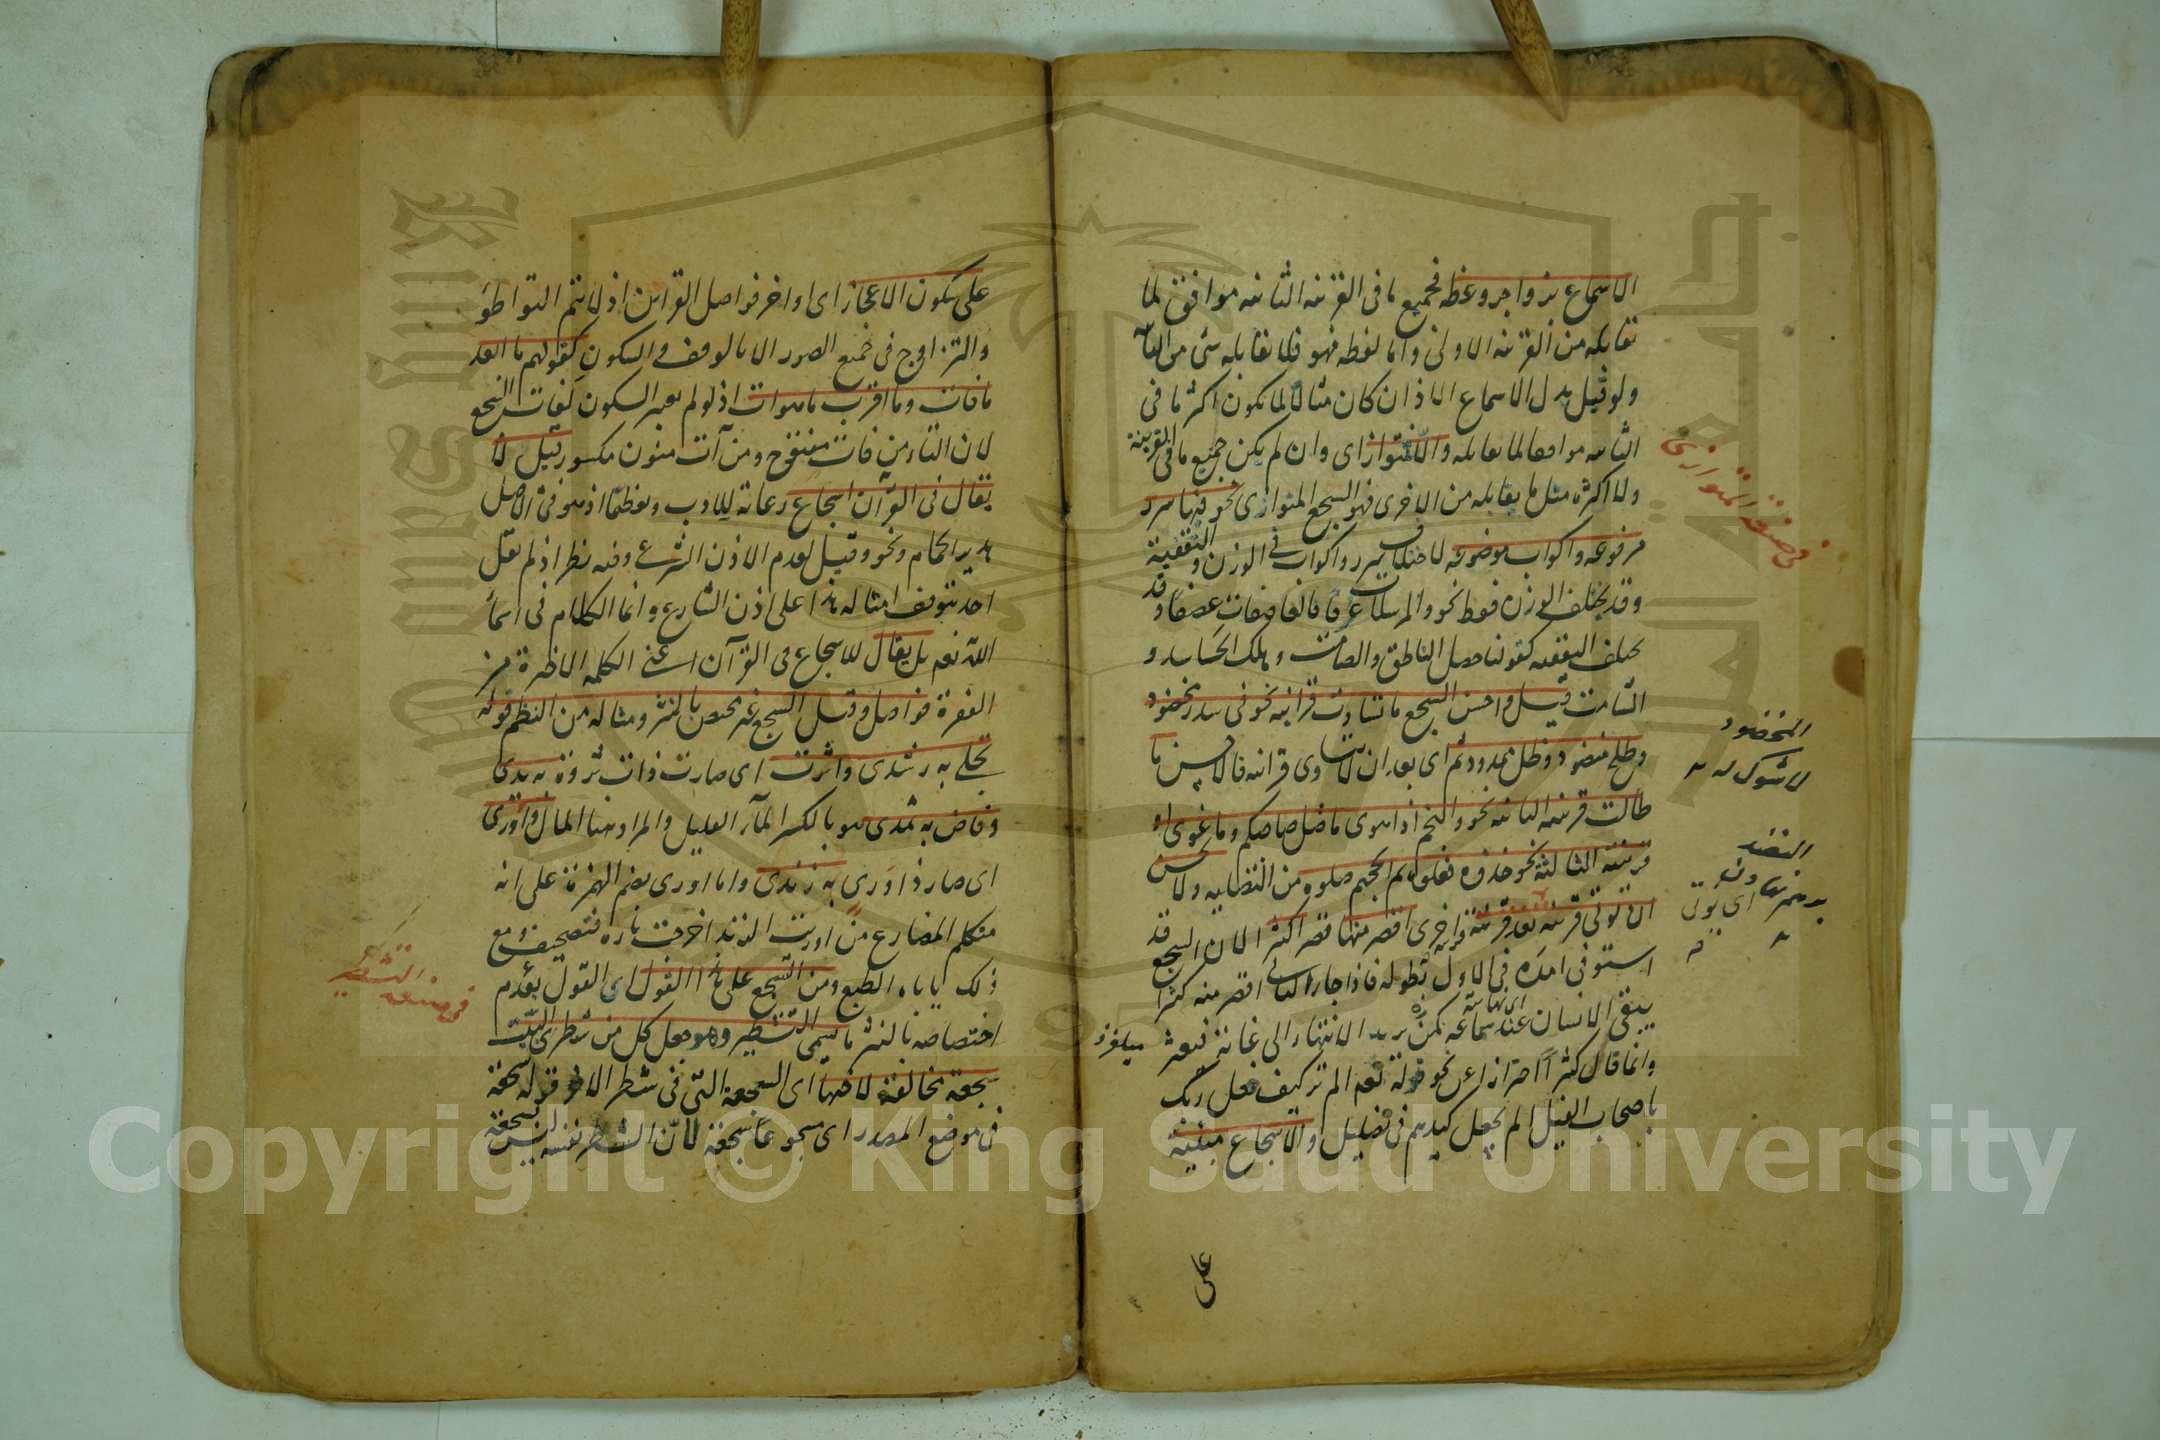 الاسماع بزواجر وعظه فجميع ما فى القرينة الثانية موافق لما
تقابله من القرينة الاولى واما لفظه فهو فلا تقابله شئ من الثانية
ولو قيل بدل الاسماع الاذان كان مثالا لما يكون اكثر ما فى
الثانية موافقا لما تقابله والا فمتواز اى وان لم يكن جميع ما فى القرينة
ولا اكثره مثل ما يقابله من الاخرى فهو السجع المتوازى نحو فيها سرر
مرفوعة واكواب موضوعة لاختلاف سرر واكواب فى الوزن والتقفية
وقد يختلف الوزن فقط نحو والمرسلات عرفا فالعاصفات عصفا وقد
يختلف التقفية كقولنا حصل الناطق والصامت وهلك الحاسد و
الشامت قيل واحسن السجع ما تساوت قرائنه نحو فى سدر مخضود
وطلح منضود وظل ممدود ثم اى بعد ان لا يتساوى قرائنه فالاحسن ما
طالت قرينته الثانية نحو والنجم اذا هوى ما ضل صاحبكم وما غوى او
قرينته الثالثة نحو خذوه فغلوه ثم الجحيم صلوه من التصلية ولا يحسن
ان تؤتى قرينة بعد قرينة قرينة اخرى اقصر منها قصرا كثيرا لان السجع قد
استوفى امده فى الاول بطوله فاذا جاء الثانى اقصر منه كثيرا
يبقى الانسان عند سماعه كمن يريد الانتهاء الى غاية فيعثر
وانما قال كثيرا احترازا عن نحو قوله تعه الم تر كيف فعل ربك
باصحاب الفيل الم يجعل كيدهم فى تضليل والاسجاع مبنية
على
فى صنعة المتوازى
المخضود
لا شوك له
النضد
اى تؤتى
على سكون الاعجاز اى اواخر فواصل القرائن اذ لا يتم التواطؤ
والتزاوج فى جميع الصور الا بالوقف والسكون كقولهم ما ابعد
ما فات وما اقرب ما هو ات اذ لو لم يعبر السكون لفات السجع
لان التاء من فات مفتوح ومن آت منون مكسور قيل لا
يقال فى القرآن اسجاع رعاية للادب وتعظيما اذ هو فى الاصل
هدير الحمام ونحو وقيل لعدم الاذن الشرعى وفيه نظر اذ لم يقل
احد بتوقف امثاله هذا على اذن الشارع وانما الكلام فى اسماء
الله نعم بل يقال للاسجاع فى القرآن اعنى الكلمة الاخيرة من
الفقرة فواصل وقيل السجع غير مختص بالنثر ومثاله من النظم قوله
تجلى به رشدى واثرت اى صارت ذات ثروة به يدى
وفاض به ثمدى هو بالكسر الماء القليل والمراد هنا المال واورى
اى صار ذا ورى به زندى واما اورى بضم الهمزة على انه
متكلم المضارع من اوريت الزند اخرجت ناره فتصحيف ومع
ذلك يأباه الطبع ومن السجع على هذا القول اى القول بعدم
اختصاصه بالنثر ما يسمى التشطير وهو جعل كل من شطرى البيت
سجعة مخالفة لاختها اى السجعة التى فى شطر الاخر قوله سجعة
فى موضع المصدر اى مسجوعا سجعة لان الشطر نفسه ليس بسجعة
فى صنعة التشطير
Copyright © King Saud University